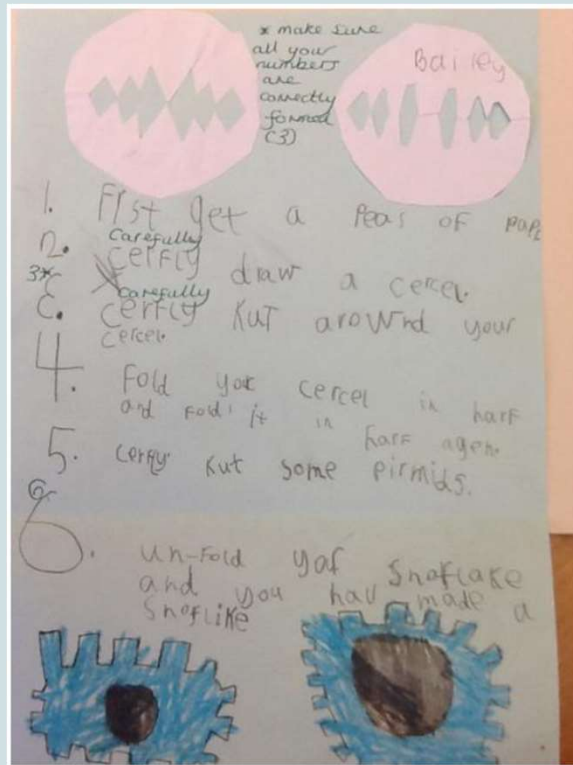 * make sure
all your
numbers
are
correctly
formed
(3)
Bailey
1. First get a peas of pape
2. cerfly draw a cercel.
Carefully
3*
3. cerfly kut arownd your
Carefully
cercel.
4. Fold yor cercel in harf
and fold it in harf agen.
5. cerfly kut some pirmids.
6
6. un-fold yor snoflake
and you hav made a
snoflike